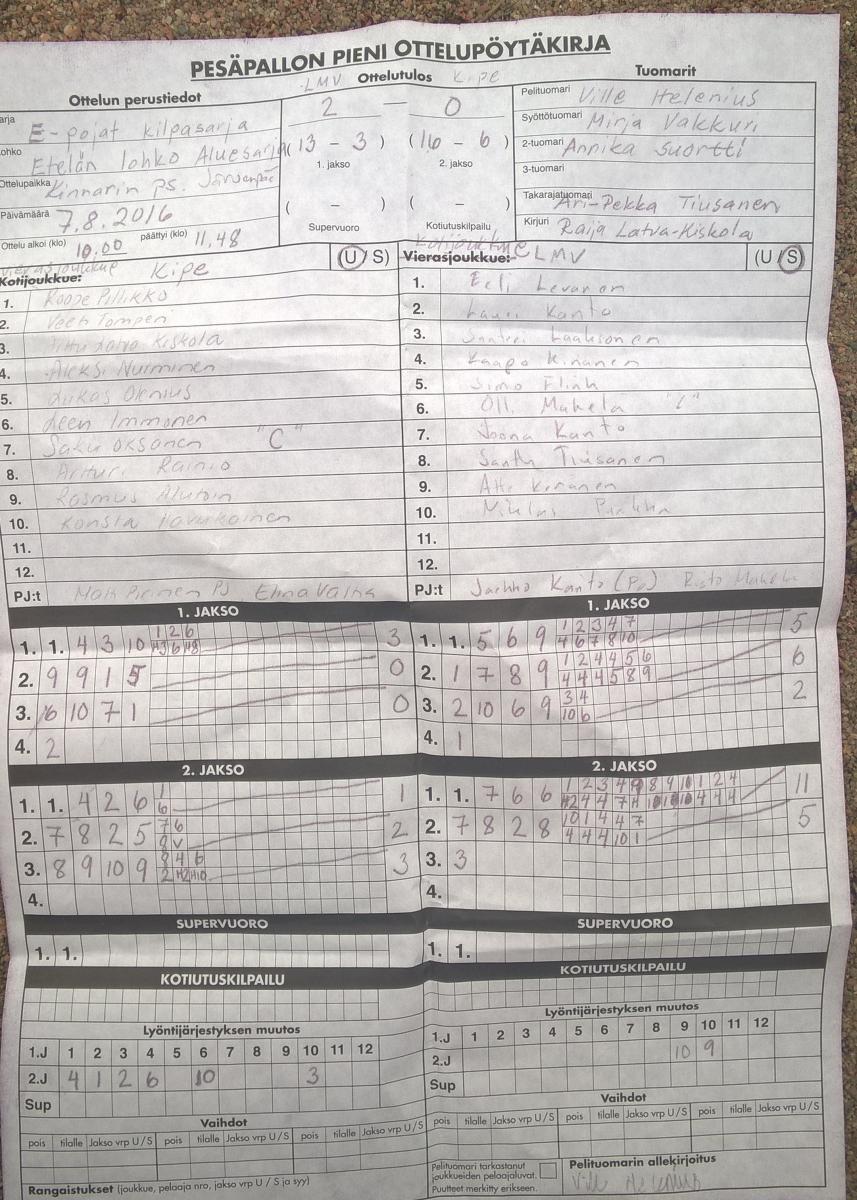 PESÄPALLON PIENI OTTELUPÖYTÄKIRJA
Ottelun perustiedot
E-pojat kilpasarja
Etelän lohko Aluesarja
Ottelupaikka Kinnarin ps. Järvenpää
Päivämäärä 7.8.2016
Ottelu alkoi (klo) 10.00 päättyi (klo) 11,48
LMV Ottelutulos Kipe
2 — 0
(13 - 3) (16 - 6)
1. jakso 2. jakso
( - ) ( - )
Supervuoro Kotiutuskilpailu
Tuomarit
Pelituomari Ville Helenius
Syöttötuomari Mirja Vakkuri
2-tuomari Annika Suortti
3-tuomari
Takarajatuomari Ari-Pekka Tiusanen
Kirjuri Raija Latva-Kiskola
vierasjoukkue
Kotijoukkue: Kipe (U/S)
1. Roope Pillikko
2.
3. Kiskola
4. Aleksi Nurminen
5. Lukas Olenius
6. Immonen
7. Saku Oksanen "C"
8. Artturi Rainio
9. Rasmus
10. Konsta Havukainen
11.
12.
PJ:t
Kotijoukkue
Vierasjoukkue: LMV (U/S)
1. Eeli Levanen
2. Lauri Kanto
3. Santeri Laaksonen
4. Kaapo Kinanen
5. Simo Flink
6. Olli Mäkelä
7. Joona Kanto
8. Santtu Tiusanen
9. Atte Keränen
10.
11.
12.
PJ:t Jarkko Kanto
1. JAKSO
1. 1. 4 3 10 1 2 6 3
2. 9 9 1 5 0
3. 16 10 7 1 0
4. 2
2. JAKSO
1. 1. 4 2 6 1 6 1
2. 7 8 2 5 7 6 2
3. 8 9 10 9 8 4 6 3
4.
SUPERVUORO
1. 1.
KOTIUTUSKILPAILU
Lyöntijärjestyksen muutos
1.J 1 2 3 4 5 6 7 8 9 10 11 12
2.J 4 1 2 6 10 3
Sup
Vaihdot
pois tilalle Jakso vrp U/S pois tilalle Jakso vrp U/S pois tilalle Jakso vrp U/S
Rangaistukset (joukkue, pelaaja nro, jakso vrp U/S ja syy)
1. JAKSO
1. 1. 5 6 9 1 2 3 4 7 5
4 6 7 8 10
2. 1 7 8 9 1 2 4 4 5 6 6
4 4 4 5 8 9
3. 2 10 6 9 3 4 2
10 6
4. 1
2. JAKSO
1. 1. 7 6 6 11
2. 7 8 2 8 10 1 4 4 7 5
4 4 4 10 1
3. 3
4.
SUPERVUORO
1. 1.
KOTIUTUSKILPAILU
Lyöntijärjestyksen muutos
1.J 1 2 3 4 5 6 7 8 9 10 11 12
2.J 10 9
Sup
Vaihdot
pois tilalle Jakso vrp U/S pois tilalle Jakso vrp U/S pois tilalle Jakso vrp U/S
Pelituomari tarkastanut
joukkueiden pelaajaluvat.
Puutteet merkitty erikseen.
Pelituomarin allekirjoitus
Ville Helenius